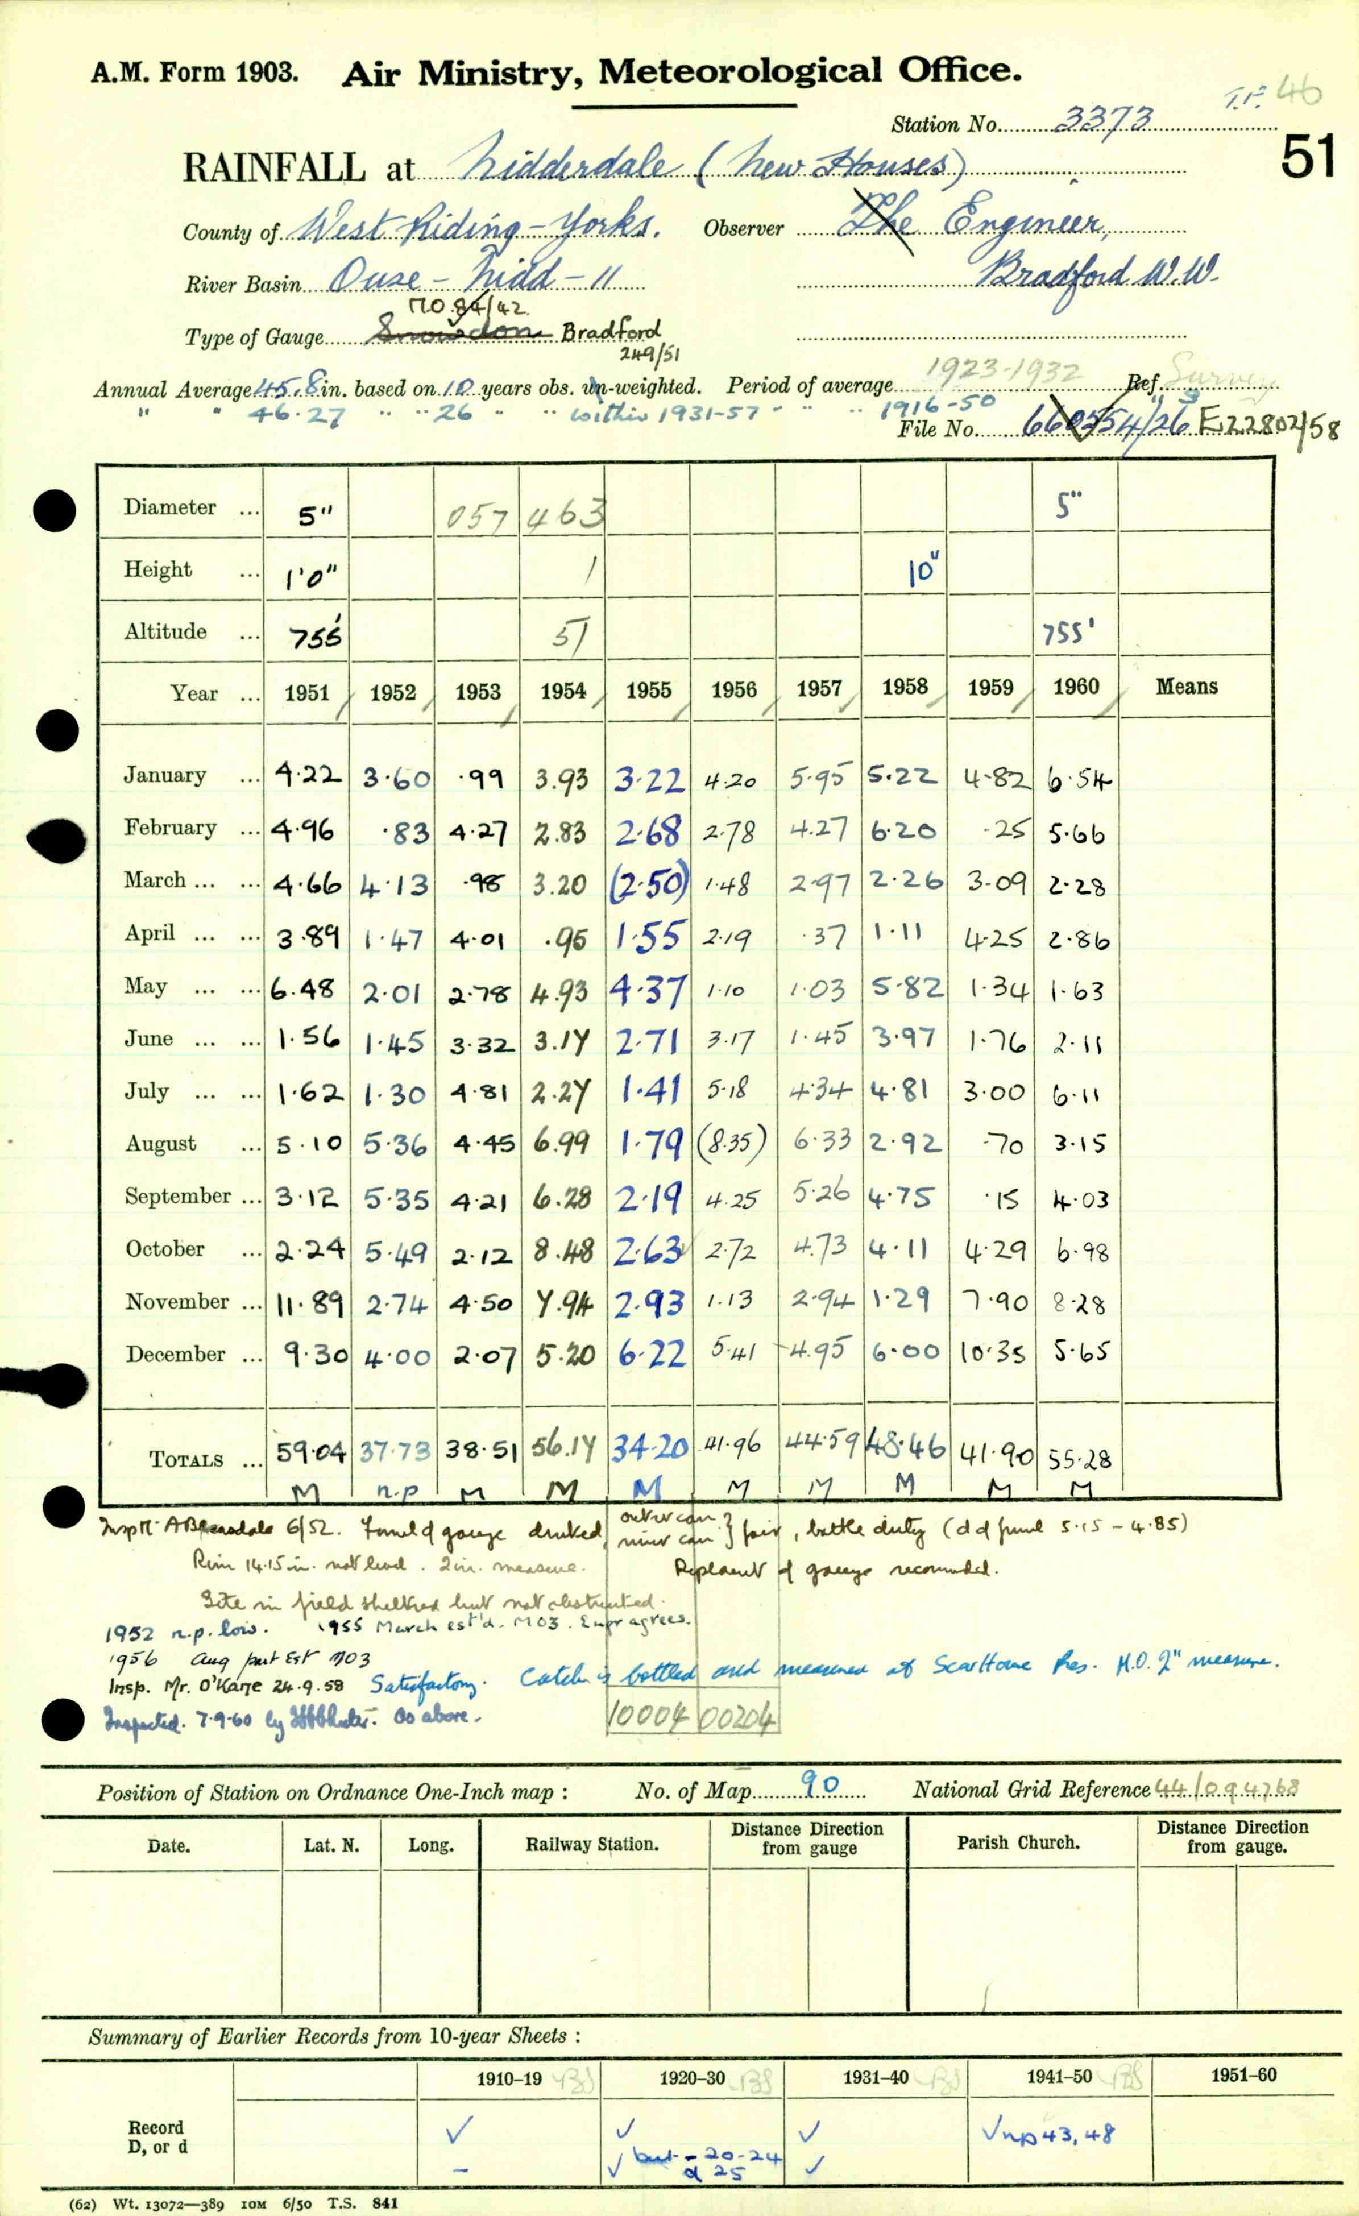 A.M. Form 1903. Air Ministry, Meteorological Office.
T.P. 46
Station No. 3373
51
RAINFALL at Nidderdale (New Houses)
County of West Riding - Yorks. Observer The Engineer,
River Basin Ouse - Nidd - 11 Bradford W.W.
M.O. 84/42
Type of Gauge Snowdon Bradford
249/51
Annual Average 45.8 in. based on 10 years obs. un-weighted. Period of average 1923-1932 Ref. Survey
" " 46.27 " " 26 " " within 1931-57 " " " 1916-50
File No. 660554/26 E22802/58
Diameter ... 5" 057 463 5"
Height ... 1'0" 1 10"
Altitude ... 755' 51 755'
Year ... 1951 1952 1953 1954 1955 1956 1957 1958 1959 1960 Means
January ... 4.22 3.60 .99 3.93 3.22 4.20 5.95 5.22 4.82 6.54
February ... 4.96 .83 4.27 2.83 2.68 2.78 4.27 6.20 .25 5.66
March ... ... 4.66 4.13 .98 3.20 (2.50) 1.48 2.97 2.26 3.09 2.28
April ... ... 3.89 1.47 4.01 .95 1.55 2.19 .37 1.11 4.25 2.86
May ... ... 6.48 2.01 2.78 4.93 4.37 1.10 1.03 5.82 1.34 1.63
June ... ... 1.56 1.45 3.32 3.17 2.71 3.17 1.45 3.97 1.76 2.11
July ... ... 1.62 1.30 4.81 2.27 1.41 5.18 4.34 4.81 3.00 6.11
August ... 5.10 5.36 4.45 6.99 1.79 (8.35) 6.33 2.92 .70 3.15
September ... 3.12 5.35 4.21 6.28 2.19 4.25 5.26 4.75 .15 4.03
October ... 2.24 5.49 2.12 8.48 2.63 2.72 4.73 4.11 4.29 6.98
November ... 11.89 2.74 4.50 7.94 2.93 1.13 2.94 1.29 7.90 8.28
December ... 9.30 4.00 2.07 5.20 6.22 5.41 4.95 6.00 10.35 5.65
TOTALS ... 59.04 37.73 38.51 56.17 34.20 41.96 44.59 48.46 41.90 55.28
M n.p M M M M M M M M
Insp Mr A Bleasdale 6/52. Funnel of gauge dented, outer can } inner can } fair, bottle dirty (d of funnel 5.15 - 4.85)
Rim 14.15 in. not level. 2 in. measure. Replacement of gauge recommended.
Site in field sheltered but not obstructed.
1952 n.p. low. 1955 March est'd. MO3. Engr agrees.
1956 Aug part Est MO3
Insp. Mr. O'Kane 24.9.58 Satisfactory. Catch is bottled and measured at Scar House Res. M.O. 2" measure.
Inspected. 7-9-60 by As above.
10004 00204
Position of Station on Ordnance One-Inch map : No. of Map 90 National Grid Reference 44/094768
Date. Lat. N. Long. Railway Station. Distance Direction from gauge Parish Church. Distance Direction from gauge.
Summary of Earlier Records from 10-year Sheets :
1910-19 BS 1920-30 BS 1931-40 BS 1941-50 BS 1951-60
Record ✓ ✓ ✓ ✓ np 43, 48
D, or d - ✓ but - 20-24 d 25 ✓
(62) Wt. 13072—389 10M 6/50 T.S. 841